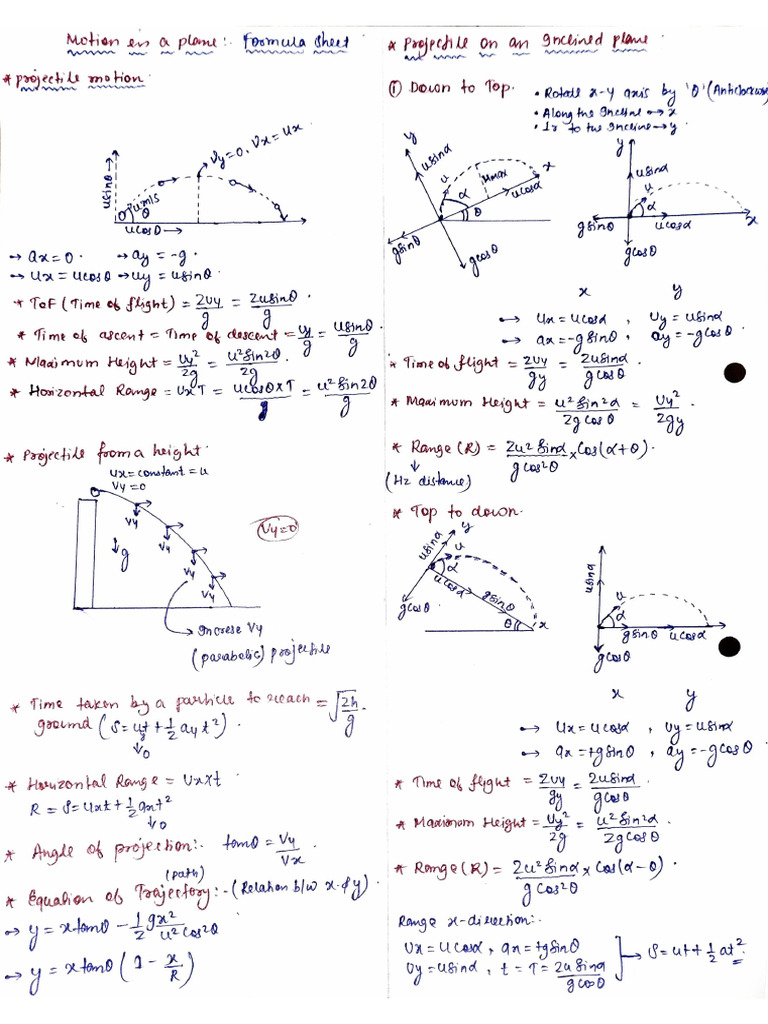 Motion in a plane:- Formula Sheet
* projectile motion.
Vy=0, Vx=Ux
usinθ
u m/s
θ
ucosθ
→ ax=0. → ay=-g.
→ Ux=ucosθ → uy=usinθ.
* ToF (Time of flight) = 2Uy/g = 2usinθ/g.
* Time of ascent = Time of descent = uy/g = usinθ/g
* Maximum Height = Uy²/2g = u²sin2θ/2g.
* Horizontal Range = UxT = ucosθxT/g = u²sin2θ/g
* Projectile from a height.
Ux=constant=u
Vy=0
Vy
Vy
Vy
Vy
g
Vy=0
Increse Vy
(parabelic) projectile
* Time taken by a particle to reach = √2h/g.
ground (S=ut+1/2 ay t²)
0
* Horizontal Range = Ux×t
R = S=Uxt+1/2axt²
0
* Angle of projection:- tanθ = Vy/Vx
(path)
* Equation of Trajectory:- (Relation b/w x & y)
→ y = xtanθ - 1/2 gx²/u²cos²θ
→ y = xtanθ (1 - x/R)
* Projectile on an Inclined plane
① Down to Top.
• Rotate x-y axis by 'θ' (Anticlockwise)
• Along the Incline → x
• ⊥r to the Incline → y
y
usinα
u
α
Hmax
x
ucosα
θ
gsinθ
gcosθ
y
usinα
u
α
gsinθ
ucosα
x
gcosθ
x y
→ Ux=ucosα, Uy=usinα
→ ax=-gsinθ, ay=-gcosθ
* Time of flight = 2Uy/gy = 2usinα/gcosθ
* Maximum Height = u²sin²α/2gcosθ = Uy²/2gy
* Range (R) = 2u²sinα/gcos²θ × cos(α+θ).
(Hz distance)
* Top to down.
y
usinα
u
α
ucosα
gsinθ
gcosθ
θ
x
usinα
u
α
gsinθ ucosα
gcosθ
x y
→ Ux=ucosα, Uy=usinα
→ ax=+gsinθ, ay=-gcosθ
* Time of flight = 2Uy/gy = 2usinα/gcosθ.
* Maximum Height = Uy²/2g = u²sin²α/2gcosθ
* Range (R) = 2u²sinα/gcos²θ × cos(α-θ).
Range x-direction:-
Ux=ucosα, ax=+gsinθ
Uy=usinα, t=T=2usinα/gcosθ
→ S=ut+1/2at²